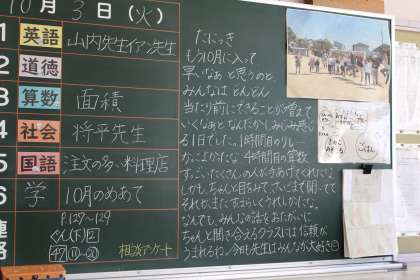 10月3日(火)
1 英語 山内先生イアン先生
2 道徳
3 算数 面積
4 社会 将平先生
5 国語 注文の多い料理店
6 学 10月のめあて
連絡
P.129~129
相談アンケート
たにっき
もう10月に入って
早いなぁと思うのと、
みんなはどんどん
当たり前にできることが増えて
いくなぁとなんだかしみじみ思え
る1日でした。1時間目のリレー
かっこよかったな。4時間目の算数
すごいたくさんの人が手あげてくれたな
しかも、ちゃんと目をみて、さいごまで聞いてて
それがまた、すばらしくうれしかったな。
なんでも、みんなの話をおたがいに
ちゃんと聞き合えるクラスには信頼が
うまれるね。今日も先生はみんなが大好き
ごはん